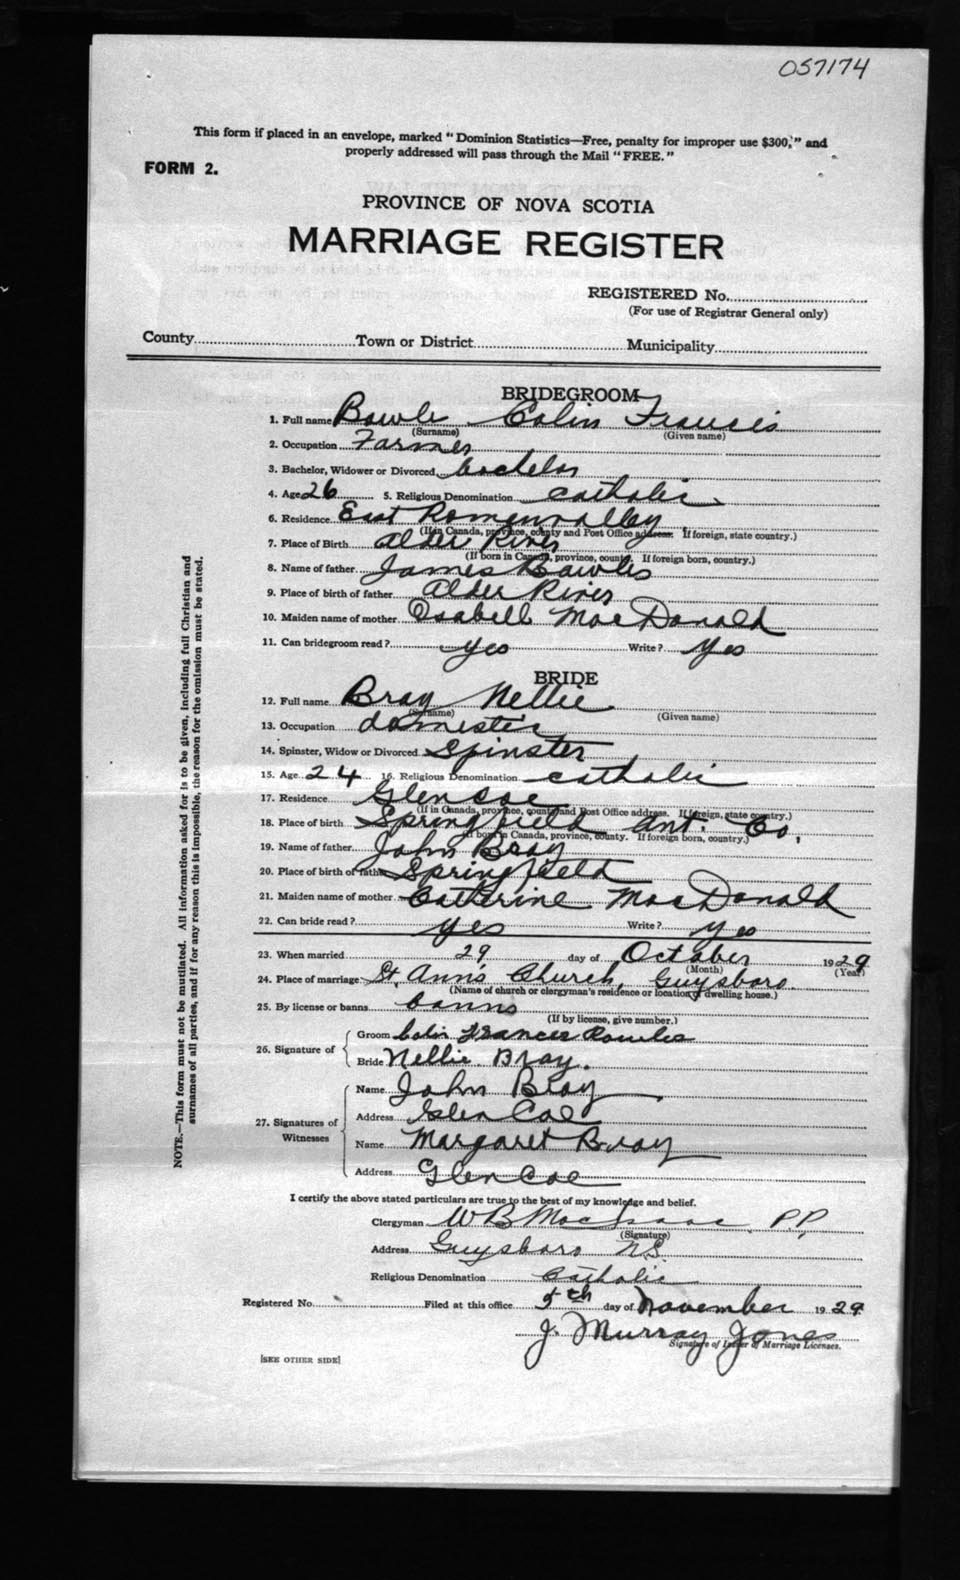 057174
This form if placed in an envelope, marked "Dominion Statistics—Free, penalty for improper use $300," and
properly addressed will pass through the Mail "FREE."
FORM 2.
PROVINCE OF NOVA SCOTIA
MARRIAGE REGISTER
REGISTERED No.
(For use of Registrar General only)
County Town or District Municipality
BRIDEGROOM
1. Full name Bowle Colin Francis
(Surname) (Given name)
2. Occupation Farmer
3. Bachelor, Widower or Divorced bachelor
4. Age 26 5. Religious Denomination catholic
6. Residence East Romenvalley
(If in Canada, province, county and Post Office address. If foreign, state country.)
7. Place of Birth alder River
(If born in Canada, province, county. If foreign born, country.)
8. Name of father James Bowles
9. Place of birth of father alder River
10. Maiden name of mother Isabell MacDonald
11. Can bridegroom read? yes Write? Yes
BRIDE
12. Full name Bray Nellie
(Surname) (Given name)
13. Occupation domestic
14. Spinster, Widow or Divorced Spinster
15. Age 24 16. Religious Denomination catholic
17. Residence Glencoe
(If in Canada, province, county and Post Office address. If foreign, state country.)
18. Place of birth Springfield Ant. Co,
(If born in Canada, province, county. If foreign born, country.)
19. Name of father John Bray
20. Place of birth of father Springfield
21. Maiden name of mother Catherine MacDonald
22. Can bride read? yes Write? yes
23. When married 29 day of October 1929
(Month) (Year)
24. Place of marriage St. Ann's Church, Guysboro
(Name of church or clergyman's residence or location of dwelling house.)
25. By license or banns banns
(If by license, give number.)
26. Signature of
Groom Colin Francis
Bride Nellie Bray.
27. Signatures of Witnesses
Name John Bray
Address Glen Coe
Name Margaret Bray
Address Glen Coe
I certify the above stated particulars are true to the best of my knowledge and belief.
Clergyman W B MacIsaac P.P.
(Signature)
Address Guysboro N.S.
Religious Denomination Catholic
Registered No. Filed at this office 5th day of November 1929
J. Murray Jones
Signature of Issuer of Marriage Licenses.
[SEE OTHER SIDE]
NOTE.—This form must not be mutilated. All information asked for is to be given, including full Christian and
surnames of all parties, and if for any reason this is impossible, the reason for the omission must be stated.